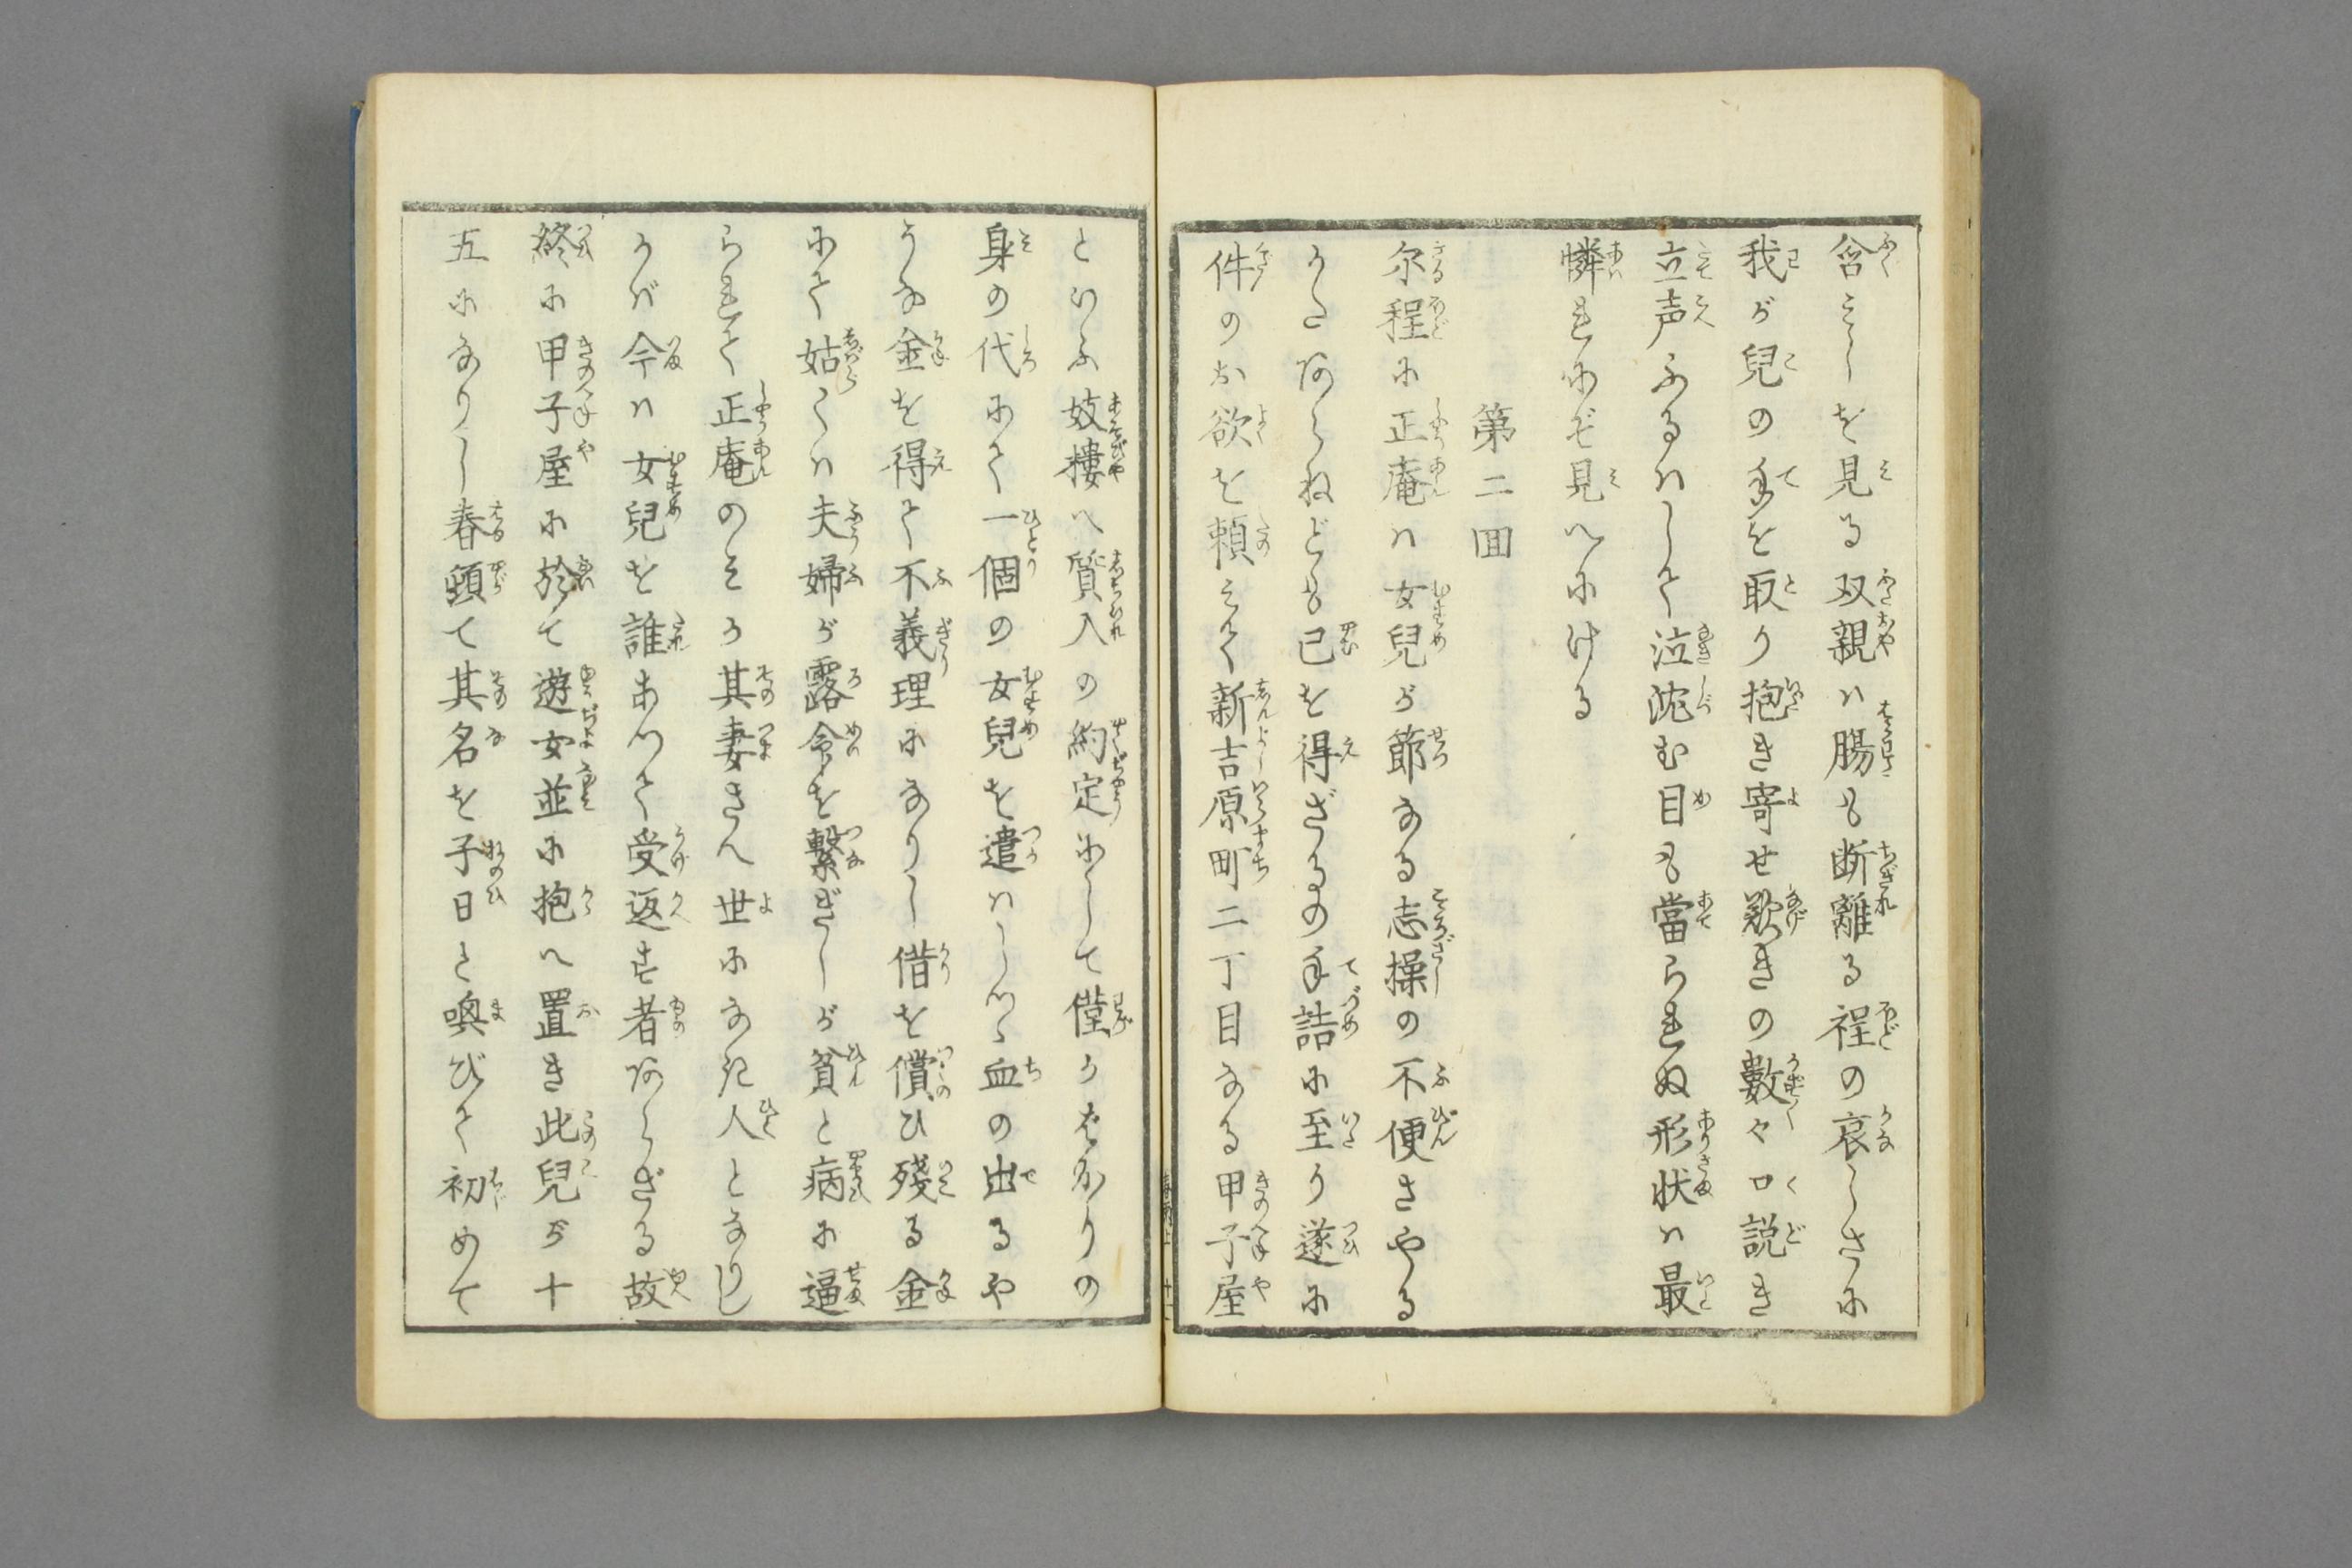 含みしを見る双親ハ腸も断離る程の哀しさに
我が児の手を取り抱き寄せ歎きの数々口説き
立声ふるハして泣沈む目も当られぬ形状ハ最
憐れにぞ見へにける
第二回
尔程に正庵ハ女児が節なる志操の不便さやる
かたあらねども已を得ざるの手詰に至り遂に
件のお欲を頼みて新吉原町二丁目なる甲子屋
といふ妓楼へ質入の約定にして僅かばかりの
身の代にて一個の女児を遣ハしつゝ血の出るや
うな金を得て不義理になりし借を償ひ残る金
にて姑くハ夫婦が露命を繋ぎしが貧と病に逼
られて正庵のみか其妻さん世になき人となりし
かバ今ハ女児を誰あつて受返す者あらざる故
終に甲子屋に於て遊女並に抱へ置き此児が十
五になりし春顕て其名を子日と喚びて初めて